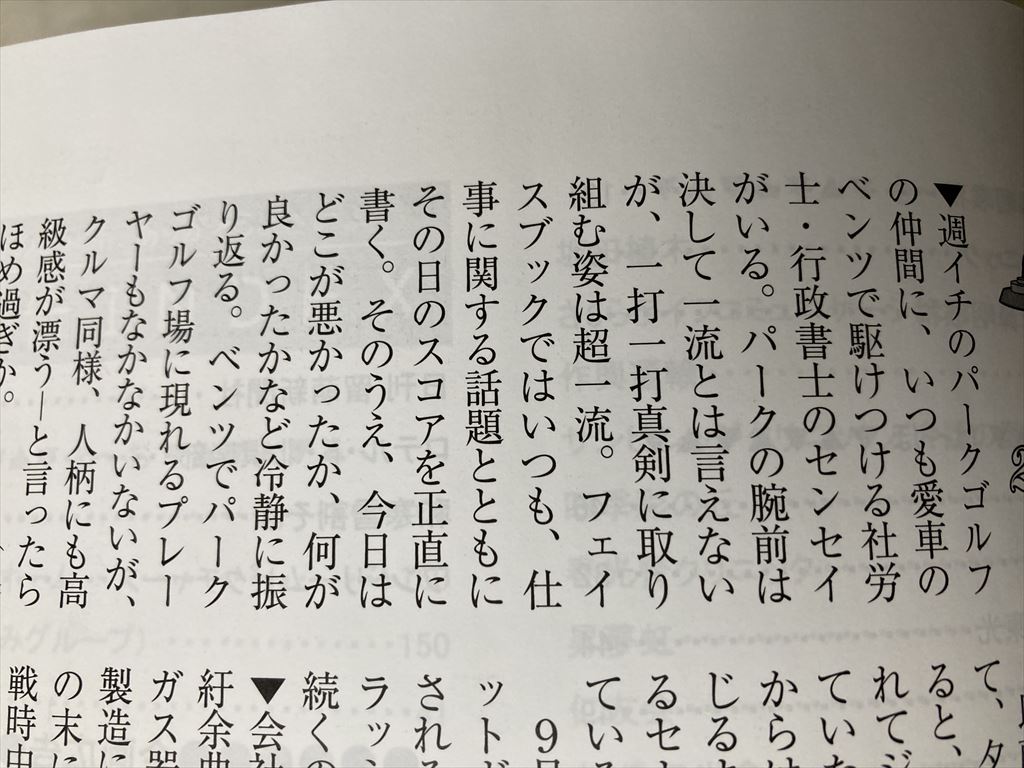 ▼週イチのパークゴルフ
の仲間に、いつも愛車の
ベンツで駆けつける社労
士・行政書士のセンセイ
がいる。パークの腕前は
決して一流とは言えない
が、一打一打真剣に取り
組む姿は超一流。フェイ
スブックではいつも、仕
事に関する話題とともに
その日のスコアを正直に
書く。そのうえ、今日は
どこが悪かったか、何が
良かったかなど冷静に振
り返る。ベンツでパーク
ゴルフ場に現れるプレー
ヤーもなかなかいないが、
クルマ同様、人柄にも高
級感が漂う―と言ったら
ほめ過ぎか。
て、タ
ると、
れてジ
ていた
からは
じるす
るセ
ている
9月
ットガ
される
ラッ
続くの
▼会社
紆余曲
ガス器
製造に
の末に
戦時中